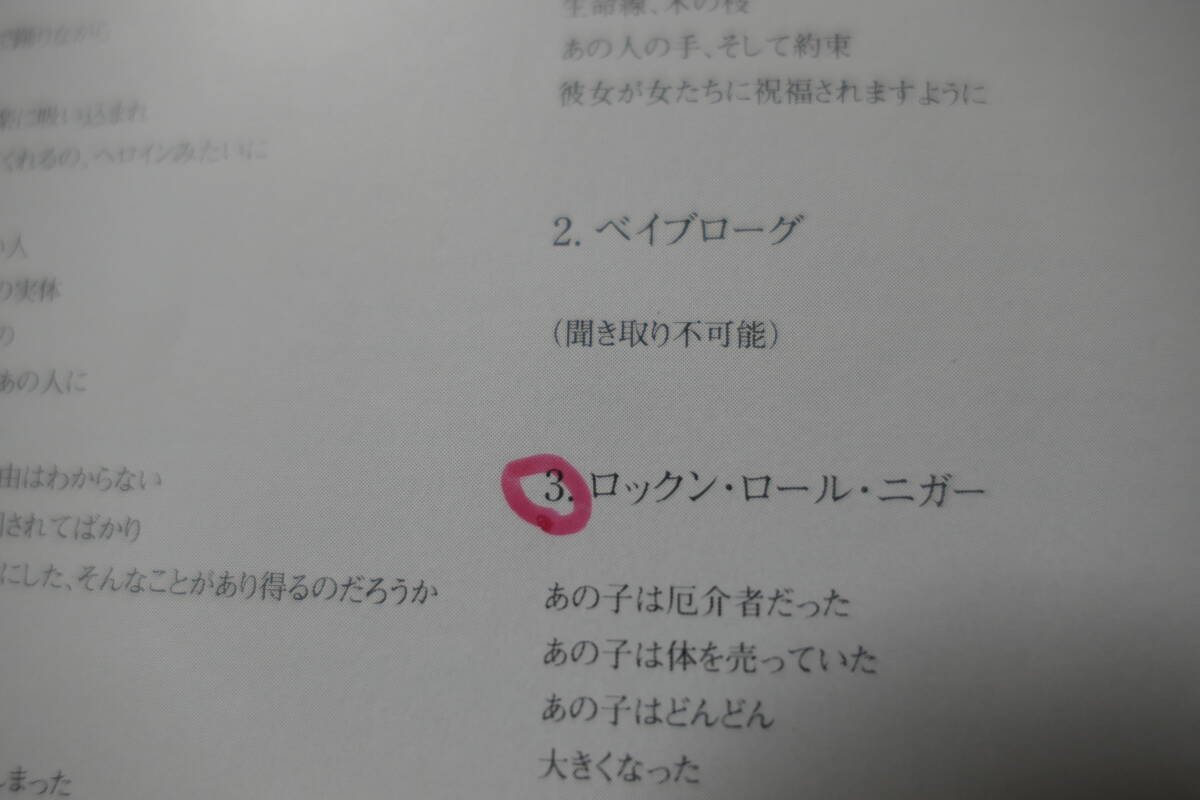 で踊りながら
に吸い込まれ
くれるの、ヘロインみたいに
人
の実体
の
あの人に
由はわからない
されてばかり
にした、そんなことがあり得るのだろうか
まった
生命線、木の枝
あの人の手、そして約束
彼女が女たちに祝福されますように
2. ベイブローグ
（聞き取り不可能）
3. ロックン・ロール・ニガー
あの子は厄介者だった
あの子は体を売っていた
あの子はどんどん
大きくなった